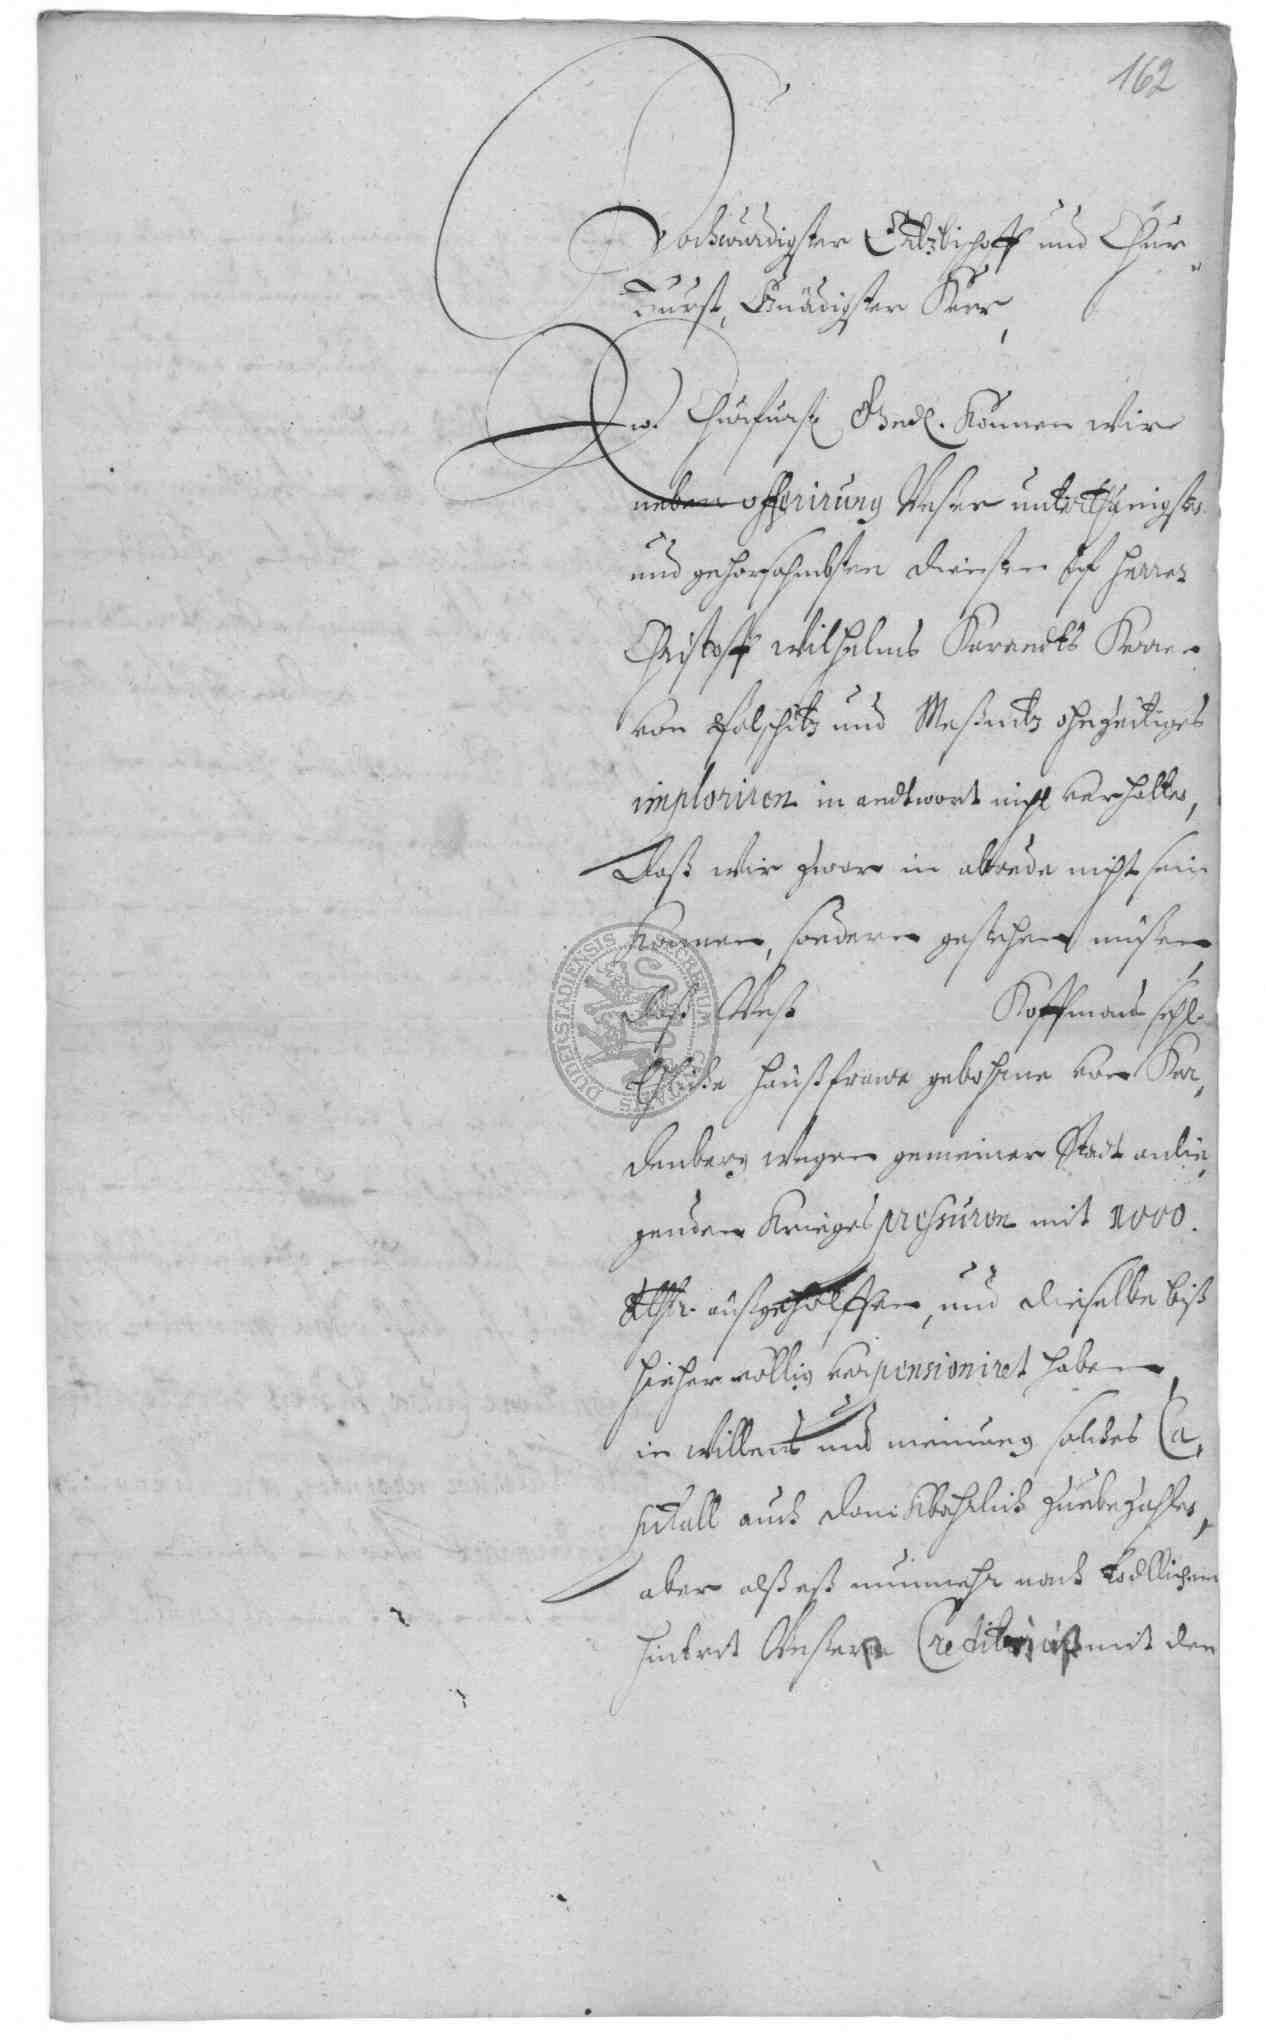 162
Hochwürdigster Ertzbischoff und Chur-
Furst, Gnädigster Herr,
Ew. Churfürstl Gnd. können wir
neben offerirung Unser unterthänigster
und gehorsahmbsten diensten uf Herren
Christoff Wilhelms Harandts Herren
von Polschitz und Weßeritz ohnzeitiges
imploriren in andtwort nicht verhalten,
Daß wir zwar in abrede nicht sein
können, sondern gestehen müßen
daß Unß Hoffmans sehl.
Eheliche haußfrawe gebohrne von Har,
denberg wegen gemeiner Stadt anlie,
genden Krieges pressuren mit 1000.
Rthlr. außgeholffen, und dieselbe biß
hieher völlig verpensioniret haben,
in willens und meinung solches Ca,
pitall auch danckbahrlich zuebezahlen,
aber alß eß nunmehr nach tödtlichem
hintrit Unser Creditricis mit den
DUDERSTADIENSIS SECRETUM CIVITATIS